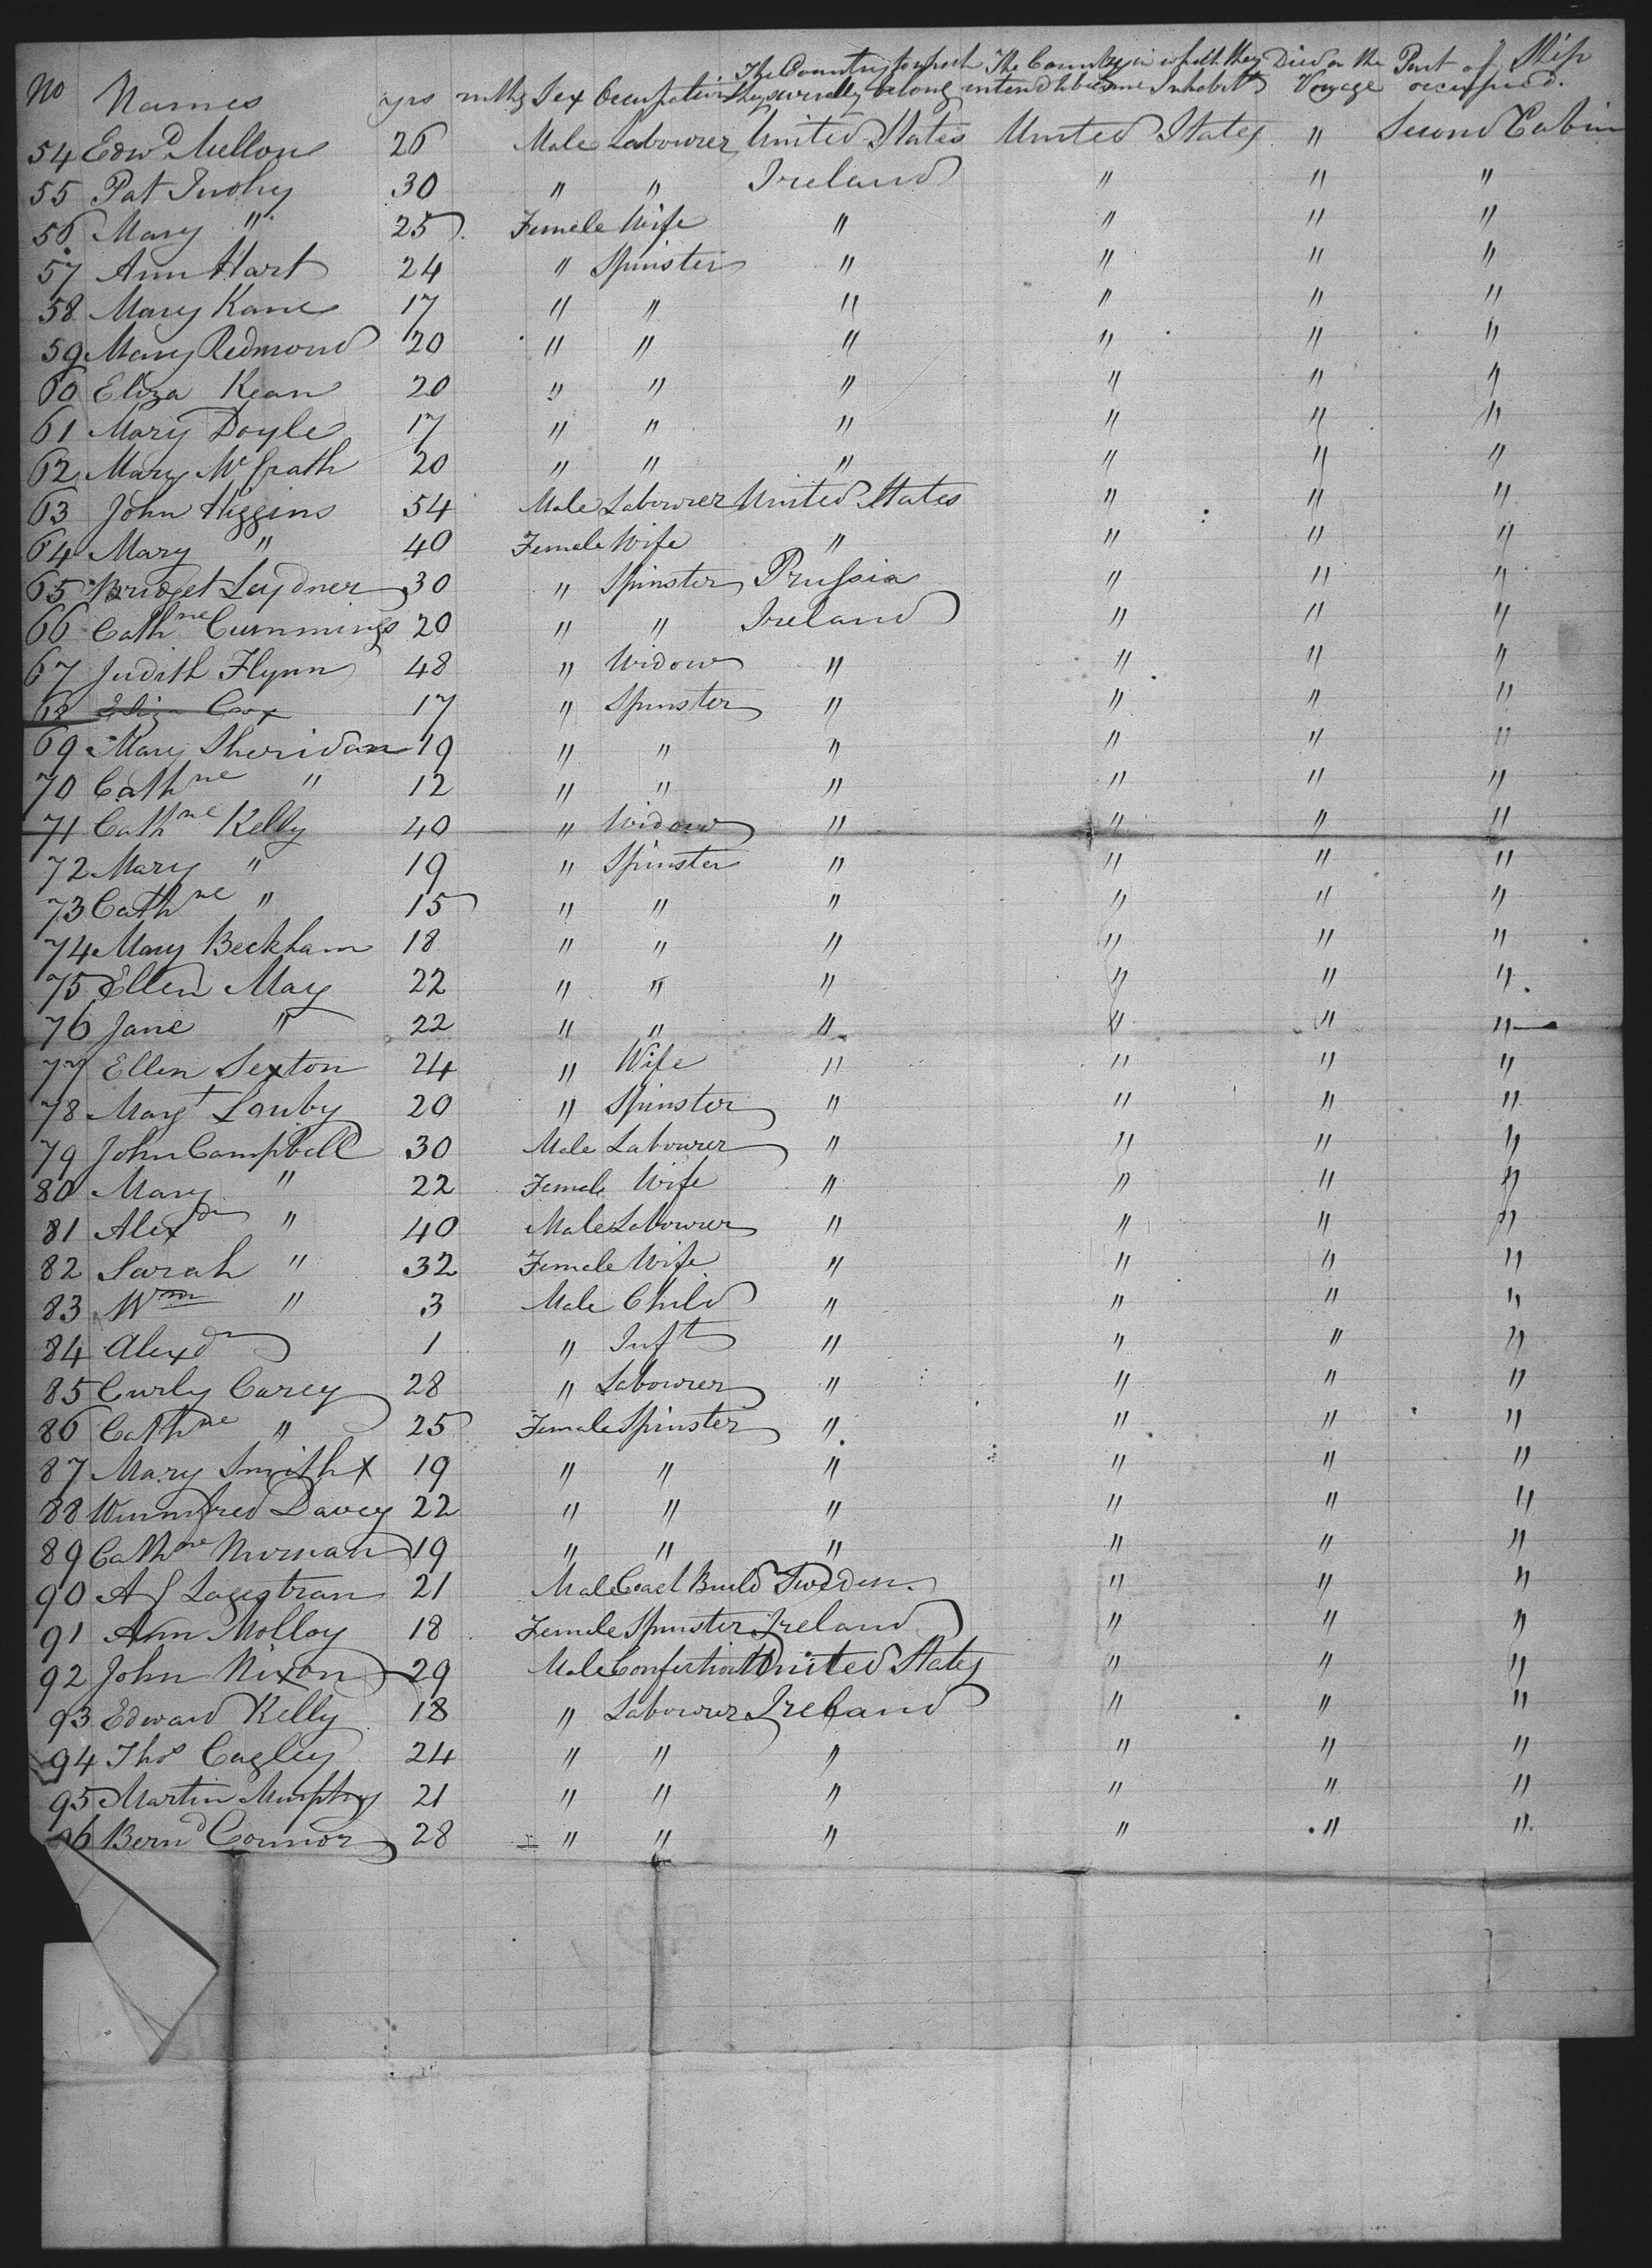 No Names yrs mths Sex Occupation The Country to which they severally belong The Country in which they intend to become Inhabts Died on the Voyage Part of Ship occupied.
54 Edwd Mellon 26 Male Labourer United States United States " Second Cabin
55 Pat Tuohy 30 " " Ireland " " "
56 Mary " 25 Female Wife " " " "
57 Ann Hart 24 " Spinster " " " "
58 Mary Kane 17 " " " " " "
59 Mary Redmond 20 " " " " " "
60 Eliza Kean 20 " " " " " "
61 Mary Doyle 17 " " " " " "
62 Mary McGrath 20 " " " " " "
63 John Higgins 54 Male Labourer United States " " "
64 Mary " 40 Female Wife " " " "
65 Bridget Leydner 30 " Spinster Prussia " " "
66 Cathne Cummings 20 " " Ireland " " "
67 Judith Flynn 48 " Widow " " " "
68 Eliza Cox 17 " Spinster " " " "
69 Mary Sheridan 19 " " " " " "
70 Cathne " 12 " " " " " "
71 Cathne Kelly 40 " Widow " " " "
72 Mary " 19 " Spinster " " " "
73 Cathne " 15 " " " " " "
74 Mary Beckham 18 " " " " " "
75 Ellen May 22 " " " " " "
76 Jane " 22 " " " " " "
77 Ellen Sexton 24 " Wife " " " "
78 Margt Lanby 20 " Spinster " " " "
79 John Campbell 30 Male Labourer " " " "
80 Mary " 22 Female Wife " " " "
81 Alexdr " 40 Male Labourer " " " "
82 Sarah " 32 Female Wife " " " "
83 Wm " 3 Male Child " " " "
84 Alexdr 1 " Inft " " " "
85 Curly Carey 28 " Labourer " " " "
86 Cathne " 25 Female Spinster " " " "
87 Mary Smith X 19 " " " " " "
88 Winnifred Davey 22 " " " " " "
89 Cathne 19 " " " " " "
90 A 21 Male Coach Build Sweden. " " "
91 Ann Molloy 18 Female Spinster Ireland " " "
92 John Nixon 29 Male United States " " "
93 Edward Kelly 18 " Labourer Ireland " " "
94 Thos Cagley 24 " " " " " "
95 Martin Murphy 21 " " " " " "
96 Bernd Connor 28 " " " " " "